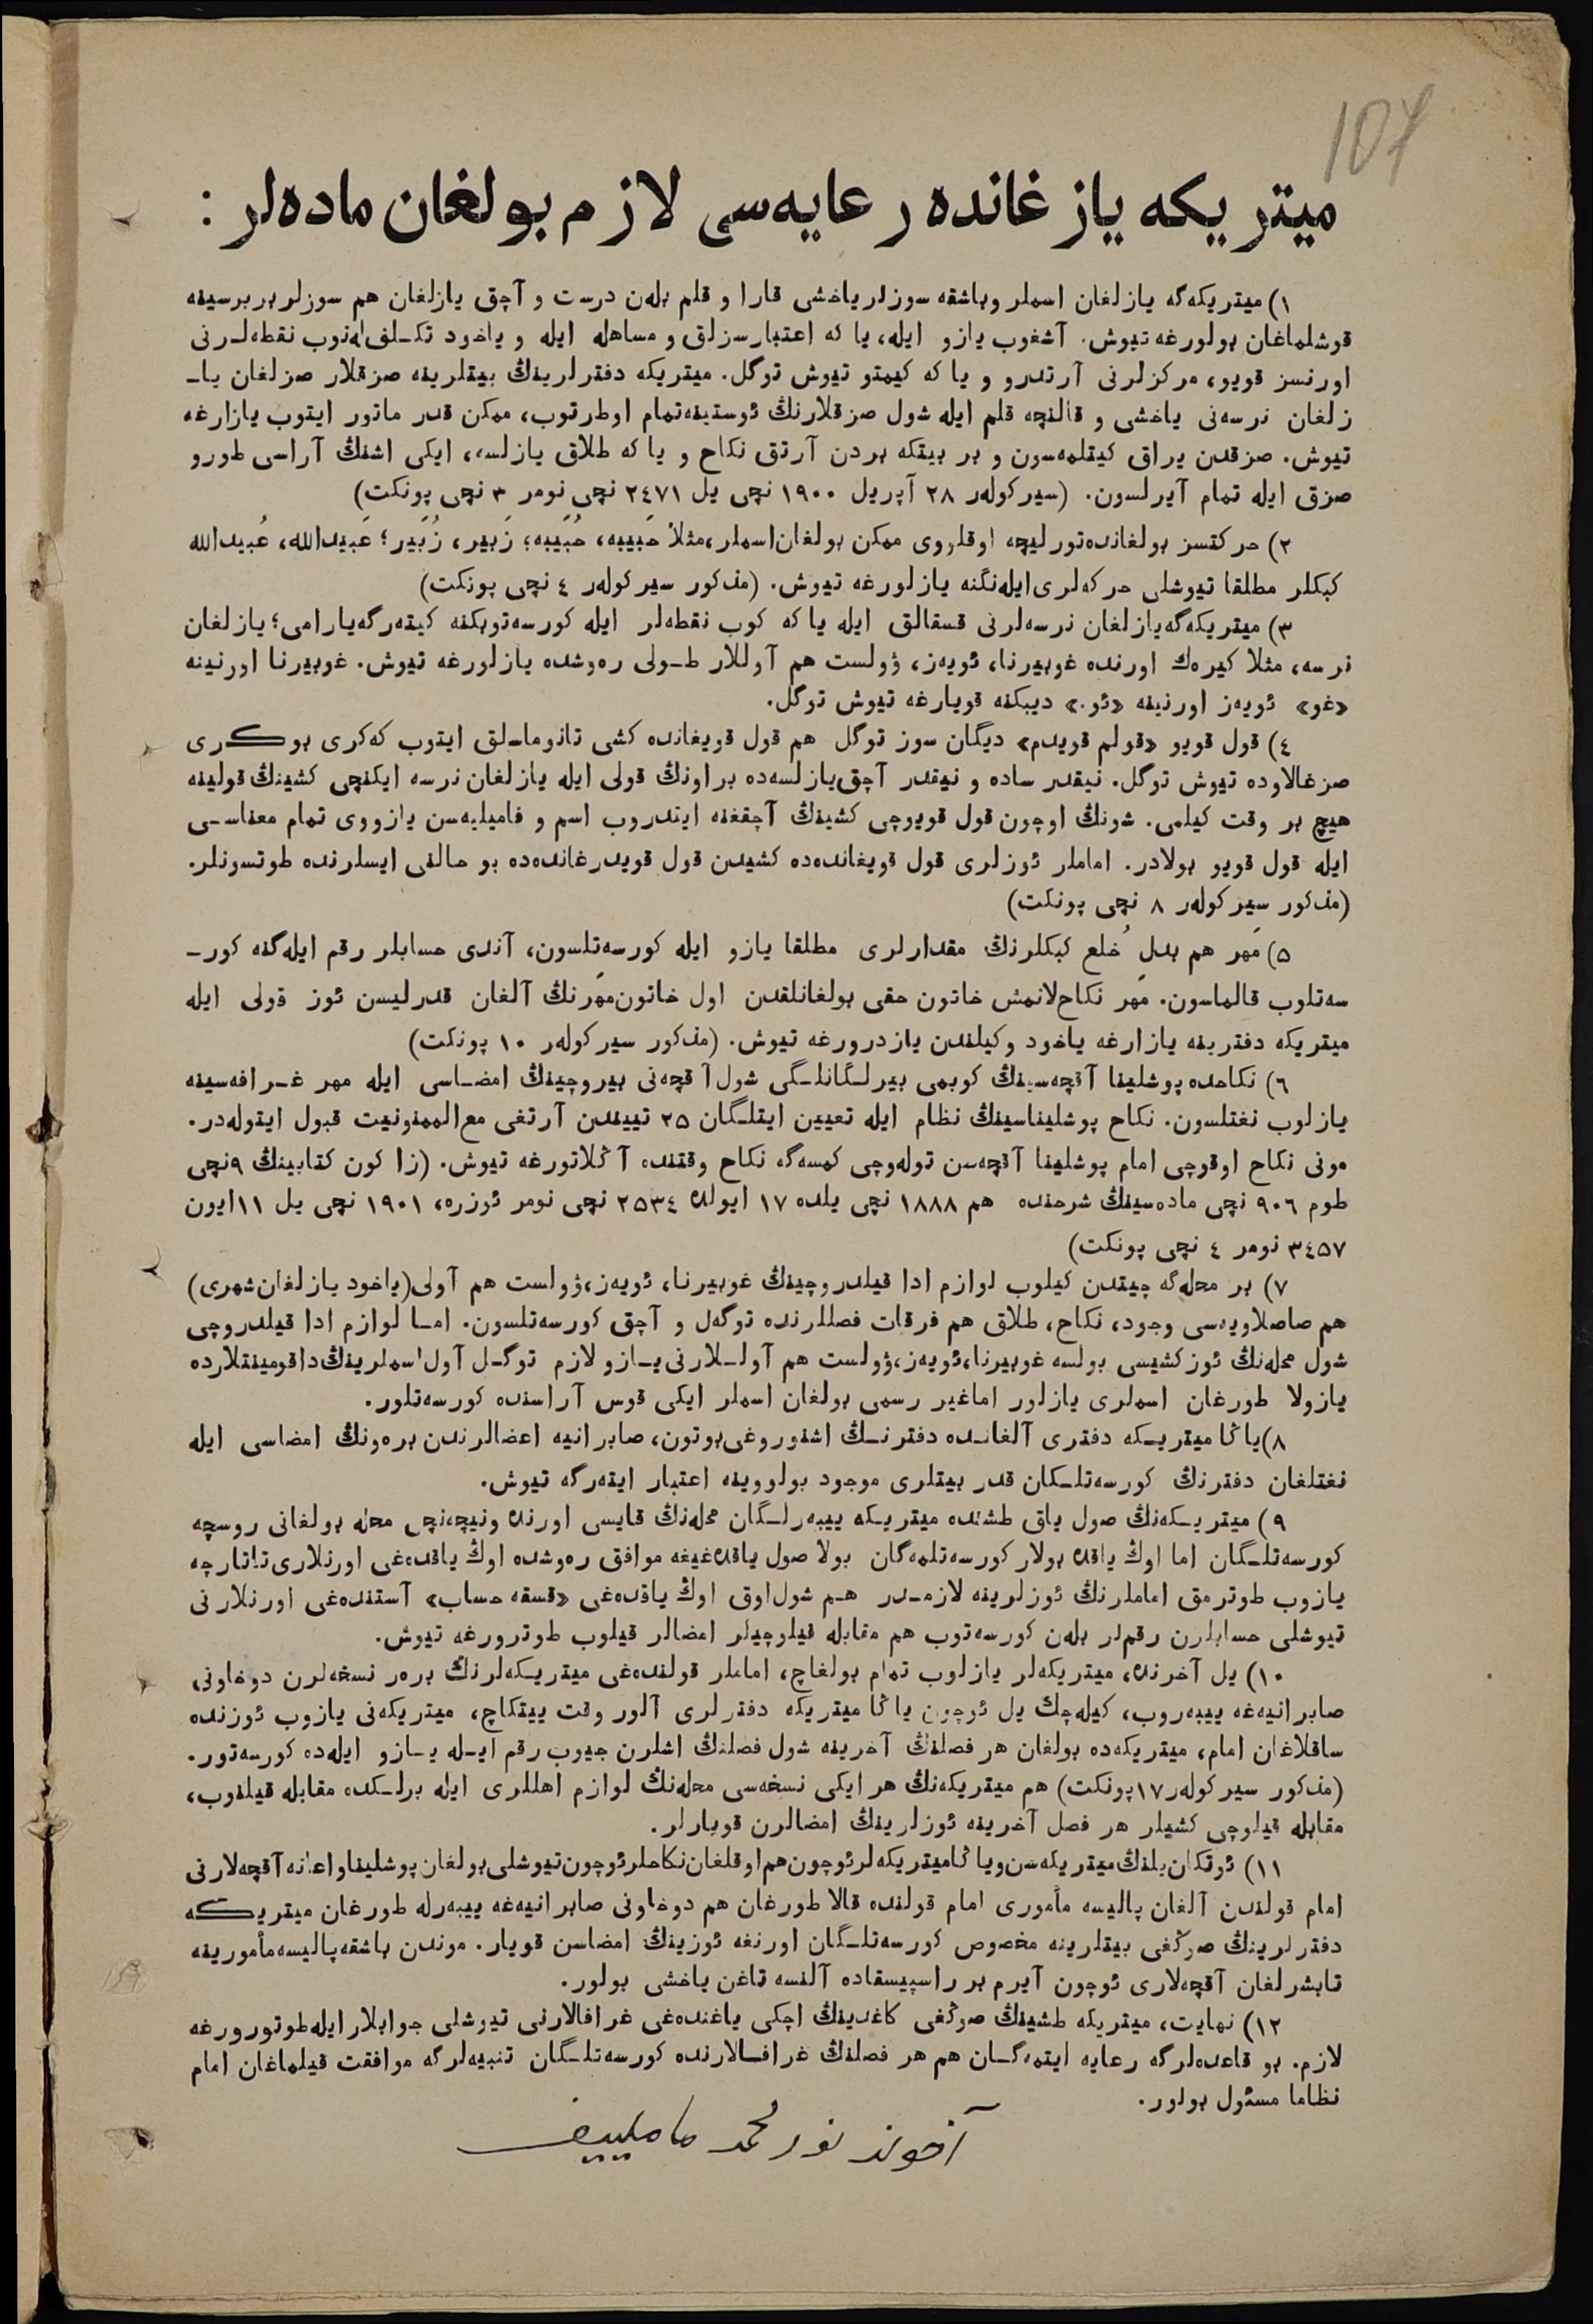 107
میتریکه یازغانده رعایه‌سی لازم بولغان ماده‌لر :
۱) میتریکه‌گه یازلغان اسملر وباشقه سوزلر یاخشی قارا و قلم بله‌ن درست و آچق یازلغان هم سوزلر بربرسینه
قوشلماغان بولورغه تیوش. آشغوب یازو ایله، یا که اعتبارسزلق و مساهله ایله و یاخود تکـلف له‌نوب نقطه‌لـرنی
اورنسز قویو، مرکزلرنی آرتدرو و یا که کیمتو تیوش توگل. میتریکه دفترلرینڭ بیتلرینه صزقلار صزلغان یاـ
زلغان نرسه‌نی یاخشی و قالنچه قلم ایله شول صزقلارنڭ ئوستینه‌تمام اوطرتوب، ممکن قدر ماتور ایتوب یازارغه
تیوش. صزقدن یراق کیتلمه‌سون و بر بیتکه بردن آرتق نکاح و یا که طلاق یازلسه، ایکی اشنڭ آراسی طورو
صزق ایله تمام آیرلسون. (سیرکوله‌ر ۲۸ آپریل ۱۹۰۰ نچی یل ۲٤۷۱ نچی نومر ۳ نچی پونکت)
۲) حرکتسز بولغانده‌تورلیچه اوقلووی ممکن بولغان‌اسملر،مثلاً حَبیبه، حُبَیبه؛ زَبیر، زُبَیر؛ عَبیدالله، عُبیدالله
کبکلر مطلقا تیوشلی حرکه‌لری‌ایله‌نگنه یازلورغه تیوش. (مذکور سیرکوله‌ر ٤ نچی پونکت)
۳) میتریکه‌گه‌یازلغان نرسه‌لرنی قسقالق ایله یا که کوب نقطه‌لر ایله کورسه‌توبکنه کیته‌رگه‌یارامی؛ یازلغان
نرسه، مثلا کیره‌ك اورنده غوبیرنا، ئویه‌ز، ۋولست هم آوللار طـولی ره‌وشده یازلورغه تیوش. غوبیرنا اورنینه
«غو» ئویه‌ز اورنینه «ئو.» دیبکنه قویارغه تیوش توگل.
٤) قول قویو «قولم قویدم» دیگان سوز توگل هم قول قویغانده کشی تانوماسلق ایتوب که‌کری بوکـری
صزغالاوده تیوش توگل. نیقدر ساده و نیقدر آچق‌یازلسه‌ده براونڭ قولی ایله یازلغان نرسه ایکنچی کشینڭ قولینه
هیچ بر وقت کیلمی. شونڭ اوچون قول قویوچی کشینڭ آچقغنه ایتدروب اسم و فامیلیه‌سن یازووی تمام معناسـی
ایله قول قویو بولادر. اماملر ئوزلری قول قویغانده‌ده کشیدن قول قویدرغانده‌ده بو حالنی ایسلرنده طوتسونلر.
(مذکور سیرکوله‌ر ۸ نچی پونکت)
۵) مَهر هم بدلِ خُلع کبکلرنڭ مقدارلری مطلقا یازو ایله کورسه‌تلسون، آندی حسابلر رقم ایله‌گنه کورـ
سه‌تلوب قالماسون. مَهر نکاح‌لانمش خاتون حقی بولغانلقدن اول خاتون‌مَهرنڭ آلغان قدرلیسن ئوز قولی ایله
میتریکه دفترینه یازارغه یاخود وکیلندن یازدرورغه تیوش. (مذکور سیرکوله‌ر ۱۰ پونکت)
٦) نکاحده پوشلینا آقچه‌سینڭ کوبمی بیرلـگانلـگی شول آقچه‌نی بیروچینڭ امضـاسی ایله مهر غـرافه‌سینه
یازلوب نغتلسون. نکاح پوشلیناسینڭ نظام ایله تعیین ایتلـگان ۲۵ تییندن آرتغی مع‌الممنونیت قبول ایتوله‌در.
مونی نکاح اوقوچی امام پوشلینا آقچه‌سن توله‌وچی کمسه‌گه نکاح وقتنده آڭلاتورغه تیوش. (زاکون کتابینڭ ۹نچی
طوم ۹۰٦ نچی ماده‌سینڭ شرحنده هم ۱۸۸۸ نچی یلده ۱۷ ایولده ۲۵۳٤ نچی نومر ئوزره، ۱۹۰۱ نچی یل ۱۱ایون
۳٤۵۷ نومر ٤ نچی پونکت)
۷) بر محله‌گه چیتدن کیلوب لوازم ادا قیلدروچینڭ غوبیرنا، ئویه‌ز،ۋولست هم آولی(یاخود یازلغان‌شهری)
هم صاصلاویه‌سی وجود، نکاح، طلاق هم فرقات فصللرنده توگه‌ل و آچق کورسه‌تلسون. امـا لوازم ادا قیلدروچی
شول محله‌نڭ ئوزکشیسی بولسه غوبیرنا،ئویه‌ز،ۋولست هم آولـلارنی‌یـازو لازم توگـل آول‌اسملرینڭ‌داقومینتلارده
یازولا طورغان اسملری یازلور اماغیر رسمی بولغان اسملر ایکی قوس آراسنده کورسه‌تلور.
۸)یاڭا میتریـکه دفتری آلغانـده دفترنـڭ اشنوروغی‌بوتون، صابرانیه اعضالرندن بره‌ونڭ امضاسی ایله
نغتلغان دفترنڭ کورسه‌تلـکان قدر بیتلری موجود بولووینه اعتبار ایته‌رگه تیوش.
۹) میتریـکه‌نڭ صول یاق طشنده میتریـکه ییبه‌رلـگان محله‌نڭ قایسی اورنده ونیچه‌نچی محله بولغانی روسچه
کورسه‌تلـگان اما اوڭ یاقده بولار کورسه‌تلمه‌گان بولا صول یاقده‌غیغه موافق ره‌وشده اوڭ یاقده‌غی اورنلاری‌تاتارچه
یازوب طوترمق اماملرنڭ ئوزلرینه لازمـدر هـم شول‌اوق اوڭ یاقده‌غی «قسقه حساب» آستنده‌غی اورنلارنی
تیوشلی حسابلرن رقم‌لر بله‌ن کورسه‌توب هم مقابله قیلوچیلر امضالر قیلوب طوترورغه تیوش.
۱۰) یل آخرنده، میتریکه‌لر یازلوب تمام بولغاچ، اماملر قولنده‌غی میتریـکه‌لرنڭ بره‌ر نسخه‌لرن دوخاونی
صابرانیه‌غه ییبه‌روب، کیله‌چك یل ئوچون یاڭا میتریکه دفترلری آلور وقت ییتکاچ، میتریکه‌نی یازوب ئوزنده
ساقلاغان امام، میتریکه‌ده بولغان هر فصلنڭ آخرینه شول فصلنڭ اشلرن جیوب رقم ایـله یـازو ایله‌ده کورسه‌تور.
(مذکور سیرکوله‌ر۱۷پونکت) هم میتریکه‌نڭ هر ایکی نسخه‌سی محله‌نڭ لوازم اهللری ایله برلـکده مقابله قیلنوب،
مقابله قیلوچی کشیلر هر فصل آخرینه ئوزلرینڭ امضالرن قویارلر.
۱۱) ئوتکان‌یلنڭ‌میتریکه‌سن‌ویاڭامیتریکه‌لرئوچون‌هم‌اوقلغان‌نکاحلرئوچون‌تیوشلی‌بولغان‌پوشلیناواعانه‌آقچه‌لارنی
امام قولندن آلغان پالیسه مأموری امام قولنده قالا طورغان هم دوخاونی صابرانیه‌غه ییبه‌رله طورغان میتریـکه
دفترلرینڭ صوڭغی بیتلرینه مخصوص کورسه‌تلـگان اورنغه ئوزینڭ امضاسن قویار. موندن باشقه‌پالیسه‌مأمورینه
تابشرلغان آقچه‌لاری ئوچون آیرم بر راسپیسقاده آلنسه تاغن یاخشی بولور.
۱۲) نهایت، میتریکه طشینڭ صوڭغی کاغدینڭ اچکی یاغنده‌غی غرافالارنی تیوشلی جوابلار ایله‌طوتورورغه
لازم. بو قاعده‌لرگه رعایه ایتمه‌گـان هم هر فصلنڭ غرافـالارنده کورسه‌تلـگان تنبیه‌لرگه موافقت قیلماغان امام
نظاما مسئول بولور.
آخوند نورمحمد ماملییف